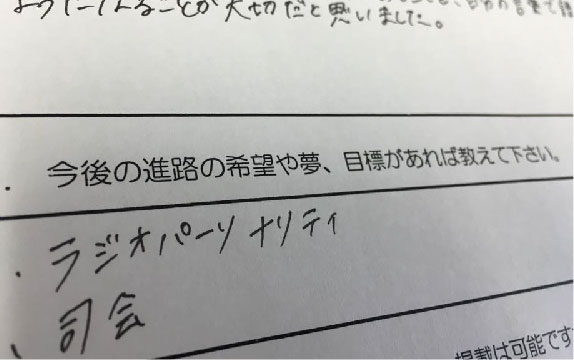 ようにすることが大切だと思いました。
・今後の進路の希望や夢、目標があれば教えて下さい。
・ラジオパーソナリティ
、司会
掲載は可能です